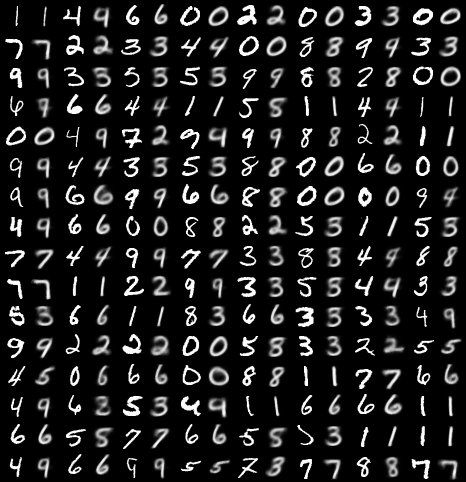 1 1 4 9 6 6 0 0 2 2 0 0 3 3 0 0
7 7 2 2 3 3 4 4 0 0 8 8 9 9 3 3
9 9 3 3 5 3 5 3 9 9 8 8 2 8 0 0
6 9 6 6 4 4 1 1 5 8 1 1 4 4 1 1
0 0 4 9 7 2 9 9 9 9 8 8 2 2 1 1
9 9 4 4 3 3 5 3 8 8 0 0 6 6 0 0
9 9 6 6 9 9 6 6 8 8 0 0 0 0 9 4
4 9 6 6 0 0 8 8 2 2 5 3 1 1 5 3
7 7 4 4 9 9 7 7 3 3 8 8 4 4 8 8
7 7 1 1 2 2 9 9 3 3 5 3 4 4 3 3
5 3 6 6 1 1 8 3 6 6 3 3 3 3 4 9
9 9 2 2 2 2 0 0 5 8 3 3 2 2 5 5
4 5 0 6 6 6 0 0 8 8 1 1 7 7 6 6
4 9 6 2 5 3 4 9 1 1 6 6 6 6 1 1
6 6 5 8 7 7 6 6 5 8 5 3 1 1 1 1
4 9 6 6 9 9 5 5 7 3 7 7 8 8 7 7